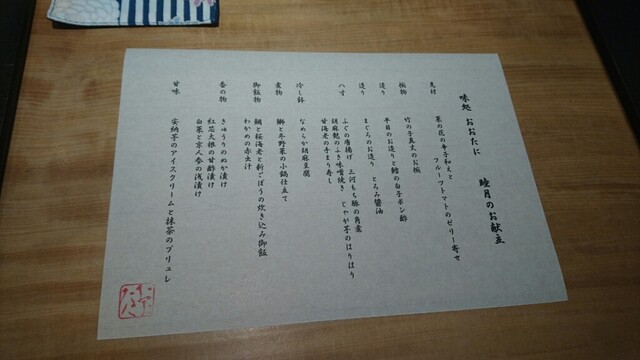 味処 おおたに 睦月のお献立
先付 菜の花の辛子和えと
フルーツトマトのゼリー寄せ
椀物 竹の子真丈のお椀
造り 平目のお造りと鱈の白子ポン酢
造り まぐろのお造り とろみ醤油
八寸 ふぐの唐揚げ 三河もち豚の角煮
胡麻麩のふき味噌焼き じゃが芋のはりはり
甘海老の手まり寿し
冷し鉢 なめらか胡麻豆腐
煮物 鰤と冬野菜の小鍋仕立て
御飯物 鯛と桜海老と新ごぼうの炊き込み御飯
わかめの赤出汁
香の物 きゅうりのぬか漬け
紅芯大根の甘酢漬け
白菜と京人参の浅漬け
甘味 安納芋のアイスクリームと抹茶のブリュレ